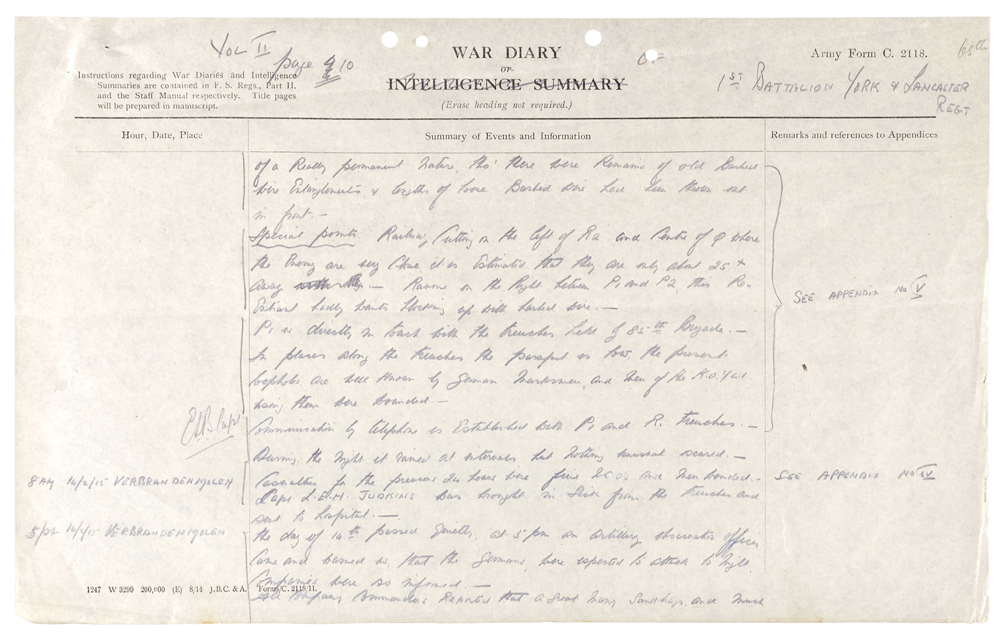 VOL II
page 10
WAR DIARY
or
INTELLIGENCE SUMMARY
(Erase heading not required.)
Army Form C. 2118.
Instructions regarding War Diaries and Intelligence
Summaries are contained in F. S. Regs., Part II.
and the Staff Manual respectively. Title pages
will be prepared in manuscript.
1ST BATTALION YORK & LANCASTER
REGT
Hour, Date, Place
Summary of Events and Information
Remarks and references to Appendices
of a Really permanent nature, tho' there were Remains of old Barbed
wire Entanglements & lengths of loose Barbed wire had been thrown out
in front. -
Special points Railway Cutting on the left of R2 and Centre of Q where
the Enemy are very Close it is Estimated that they are only about 25 x
away - Ravine on the Right between P1 and P2, this Re-
Entrant badly wants blocking up with barbed wire. -
SEE APPENDIX No V
P1 is directly in touch with the trenches held by 85th Brigade. -
In places along the trenches the parapet is low, the present
loopholes are well known by German Marksmen, and Men of the K.O.Y.L.I
using them were wounded. -
Communication by telephone is Established with P1 and R1 trenches. -
During the Night it rained at intervals but nothing unusual occured. -
8 AM 14/4/15 VERBRANDENMOLEN
Casualties for the previous 24 hours were four NCOs and Men wounded. -
SEE APPENDIX No IV
Capt L.E.H. JUDKINS was brought in Sick from the trenches and
sent to hospital. -
5 pm 14/4/15 VERBRANDENMOLEN
The day of 14th passed quietly, at 5 pm an artillery observation officer
Came and warned us, that the Germans were expected to attack to Night
Companies were so informed. -
All Company Commanders Reported that a great Many Sandbags and Much
1247 W 3299 200,000 (E) 8/14 J.B.C. & A. Forms C. 2118/11.